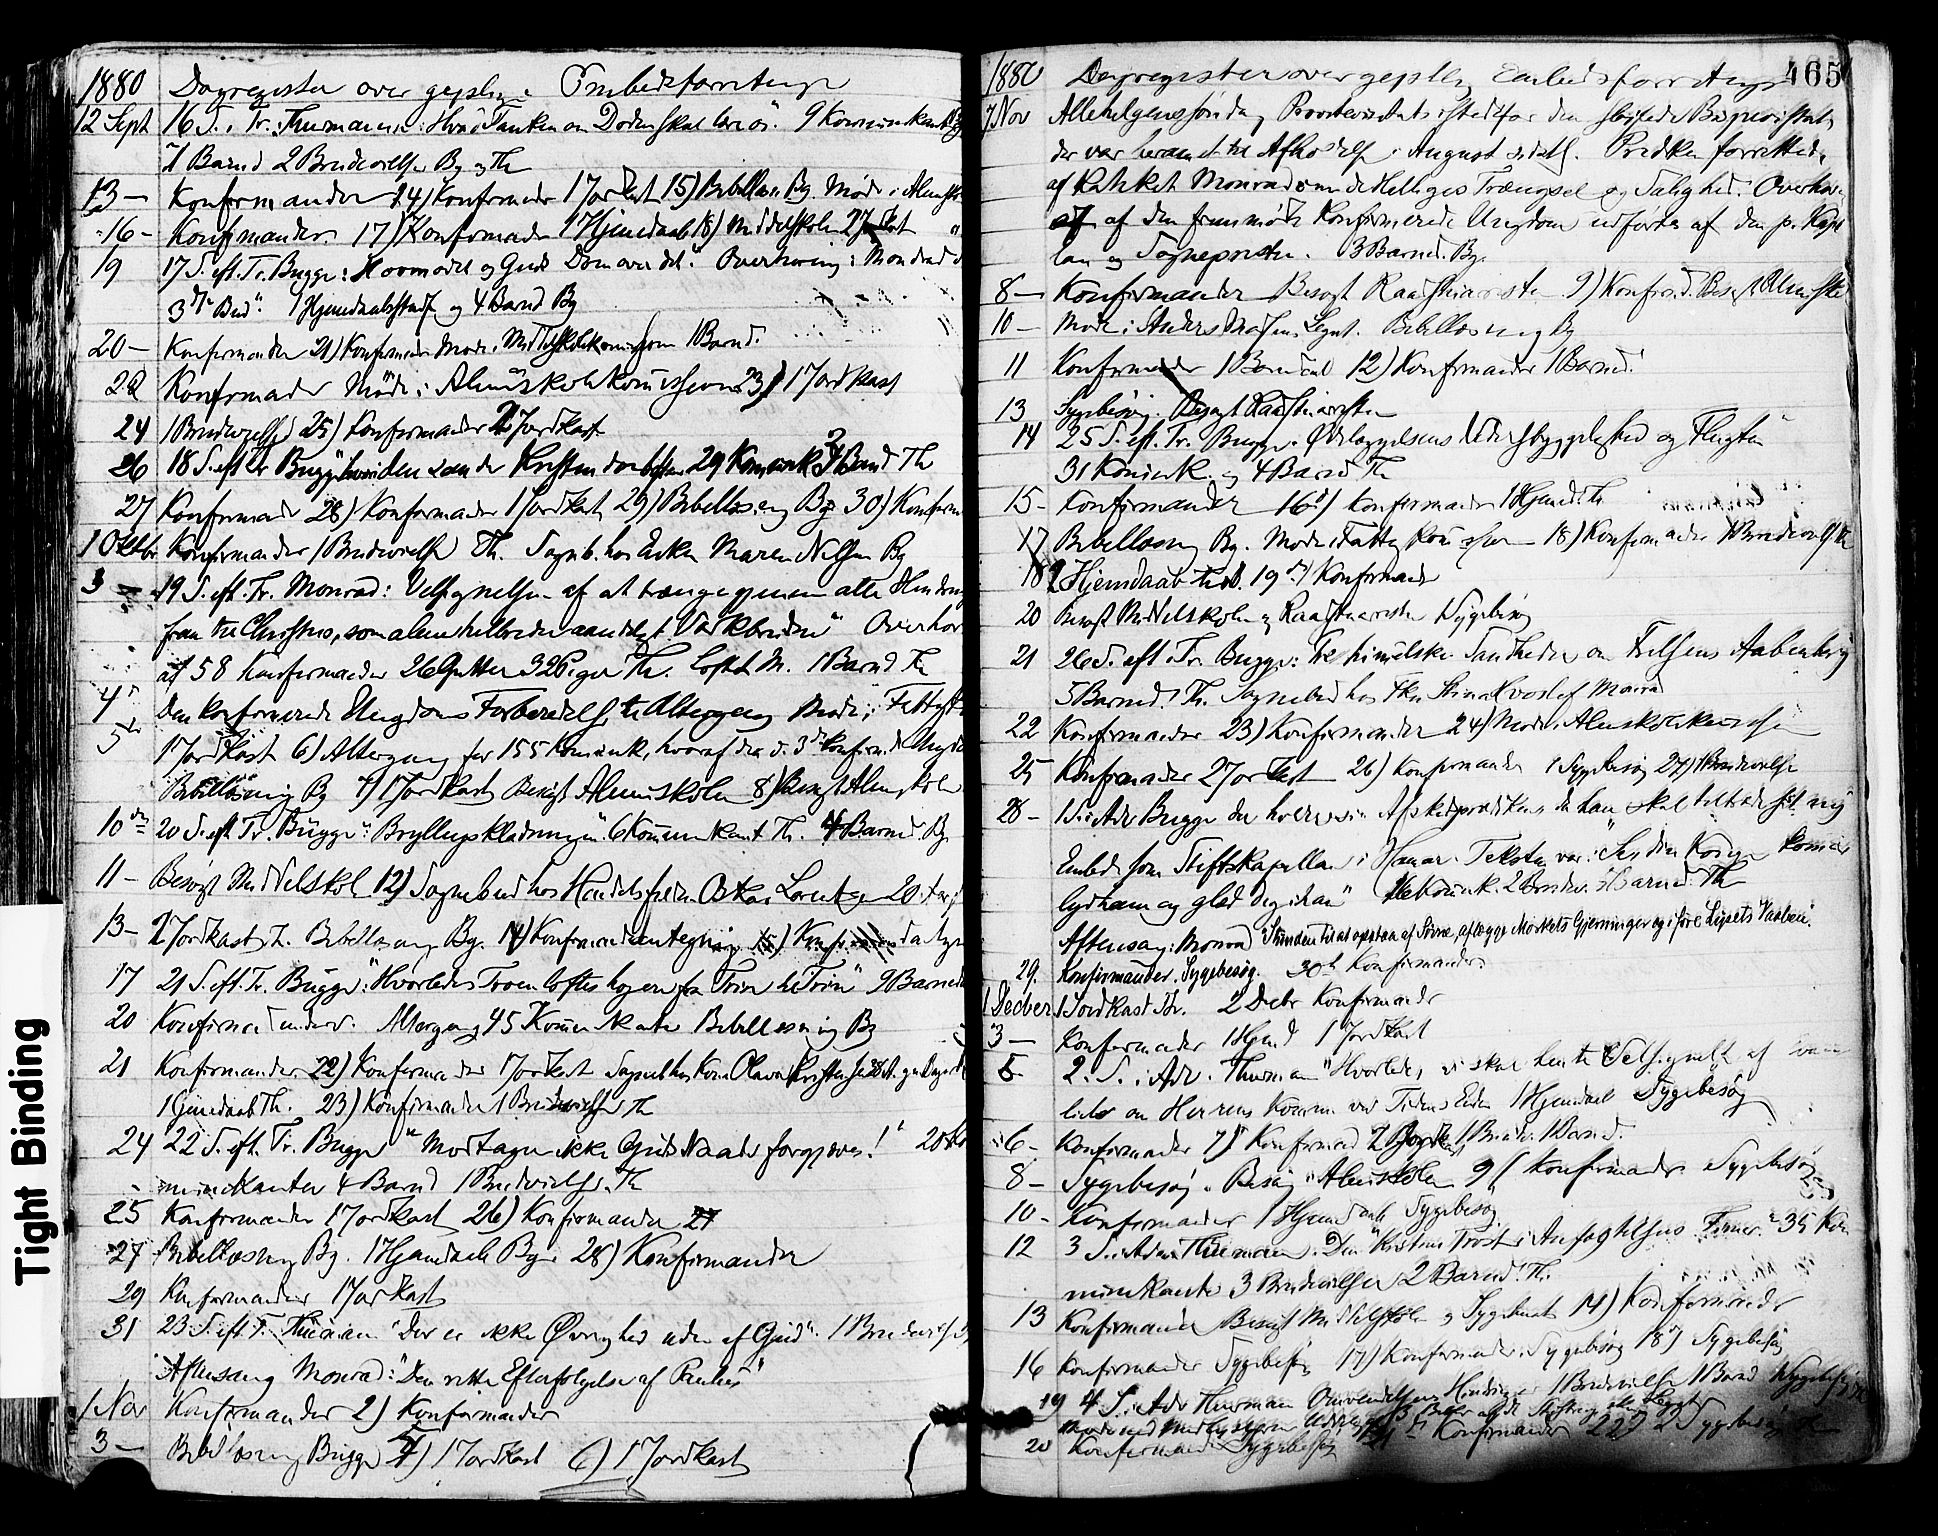 Tight Binding
1880 Dagregister over geistlige Embedsforretninger
12 Sept 16 S. e. Tr. Thurmann: Hvad Tanken om Døden skal lære os. 9 Kommunikanter
1 Barnd 2 Brudevielser By og Th
13 – Konfirmander 14) Konfirmander 1 Jordkast 15) Bibellæsn. By. Møde i Almsk
16 – Konfirmander 17) Konfirmander 1 Hjemdaab 18) Middelskolen 2 Jordkast
19 17 S. eft. Tr. Bugge: Hovmodet og Guds Dom over det." Overhøring: Monrad
3die Bud". 1 Hjemdaabsstadf og 4 Barnd By
20 – Konfirmander 21) Konfirmander Møde i Middelskolekommissionen 1 Barnd.
22 Konfirmander Møde i Almuskolekommissionen 23) 1 Jordkast
24 1 Brudevielse 25) Konfirmander 2 Jordkast
26 18 S. eft Tr Bugge 29 Kommunik 4 Barnd Th
27 Konfirmander 28) Konfirmander 1 Jordkast, 29) Bibellæsning By 30) Konfirm
1 Oktbr Konfirmander 1 Brudevielse Th. Sognb. hos Enken Maren Nilsen By
3 – 19 S. eft. Tr. Monrad: Velsignelsen af at trænge gjennem alle Hindring
frem til Christus, som alene helbreder aandeligt Værkbrudne" Overhør
af 58 Konfirmander 26 Gutter 32 Piger Th. Loftet M. 1 Barnd Th
4de Den konfirmerede Ungdoms Forberedelse til Altergang Møde i Fattig
5te 1 Jordkast 6) Altergang for 155 Kommunik, hvoraf de konfirmerede Ungdom
Bibellæsning By 7) 1 Jordkast Besøgt Almuskolen 8) Besøgt Almuskolen
10de 20 S. eft Tr. Bugge: "Bryllupsklædningen" 6 Kommunikant Th. 4 Barnd. By
11 – Besøgt Middelskol 12) Sognebud hos
13 – 2 Jordkast Th. Bibellæsning By. 14) Konfirmandantegning 15)
17 21 S. eft. Tr. Bugge: "Hvorledes Troen løftes høiere fra Trin til Trin" 9 Barned
20 Konfirmandunderv. Altergang 45 Kommunikanter Bibellæsning By
21 Konfirmander 22) Konfirmander 1 Jordkast
1 Hjemdaab Th. 23) Konfirmander 1 Brudevielse Th
24 22 S. eft. Tr. Bugge "Modtager ikke Guds Naade forgjæves!" 20 Kom
munikanter 4 Barnd 1 Brudevielse. Th
25 Konfirmander 1 Jordkast 26) Konfirmander 27
27 Bibellæsning By. 1 Hjemdaab By. 28) Konfirmander
29 Konfirmander 1 Jordkast
31 23 S. eft T. Thurman "Der er ikke Øvrighed uden af Gud". 1 Brudevielse
Aftensang Monrad: "Den rette Efterfølgelse af Paulus"
1 Nov Konfirmander 2) Konfirmander
3 – Bibellæsning Bugge 4) 1 Jordkast 6) 1 Jordkast
1880 Dagregister over geistlige Embedsforretninger 465
7 Nov Allehelgenssøndag, Provstevisitats istedetfor den høitidelige Bispevisitats
der var berammet til Afholdelse i August sidstl. Prædiken forrettedes
af Kateket Monrad om de Helliges Trængsel og Salighed. Overhør
af den fremmødte Konfirmerede Ungdom udførtes af den p. Kapel
lan og Sognepresten. 3 Barned. By.
8 – Konfirmander Besøgt Raadstuarresten 9) Konfirmd. Besøgt Almuskolen
10 – Møde i Anders Legat. Bibellæsning By
11 Konfirmander 1 Barnd 12) Konfirmander 1 Barned.
13 Sygebesøg. Besøgt Raadstuarresten
14 25 S. eft. Tr. Bugge. Ødelæggelsens Vederstyggelighed og Flugten
31 Kommunik. og 4 Barnd Th
15 – Konfirmander 16de) Konfirmander 1 Hjemd. Th
17 Bibellæsning By. Møde i Fattigkommissionen 18) Konfirmander 1 Brudevielse Th
18 2 Hjemdaab 19de) Konfirmander
20 Besøgt Middelskolen og Raadstuarresten 1 Sygebesøg
21 26 S. eft. Tr. Bugge: Tre himmelske Sandheder om Frelsens Aabenbaring
5 Barned. Th. Sognebud hos Monrad
22 Konfirmander 23) Konfirmander 24) Møde i Almuskolekommissionen
25 Konfirmander 2 Jordkast 26) Konfirmander 1 Sygebesøg 27) Brudevielse
28 – 1 S. i Adv Bugge der holder sin Afskedsprædiken, da han skal tiltræde sit nye
Embede som Stiftskapellan i Hamar. Teksten var: "Se, din Konge kommer
lyd ham og glæd dig i ham" Kommunik. 2 Brudev. Barned Th
Aftensang: Monrad "Stunden til at opstaa af Søvne, aflægge Mørkets Gjerninger og iføre Lysets Vaaben".
29. Konfirmander. Sygebesøg. 30te Konfirmander.
1 Decber 1 Jordkast Th. 2 Decbr Konfirmander
3 – Konfirmander 1 Hjemd 1 Jordkast
5 2. S. i Adv. Thurman "Hvorledes vi skal hente Velsignelse af
om Herrens Komme ved Tidens Ende 1 Hjemdaab Sygebesøg
6 – Konfirmander 7) Konfirmand 2 Jordk 1 Brudev. 1 Barnd.
8 – Sygebesøg. Besøg i Almuskolen 9) Konfirmander Sygebesøg
10 – Konfirmander 1 Hjemdaab Sygebesøg
12 3 S. i Adv. Thurman. Den Kristnes Trøst i Anfægtelsens Timer." 35 Kom
munikanter 3 Brudevielser 2 Barnd. Th.
13 Konfirmander Besøgt Middelskolen og Sygehuset 14) Konfirmander
16 Konfirmander Sygebesøg 17) Konfirmander. Sygebesøg 18de) Sygebesøg
19 4 S. i Adv Thurman Omvendelsens Hindringer 1 Brudevielse 1 Barnd Sygebesøg
20 Konfirmander Sygebesøg 21 Konfirmander 22) 2 Sygebesøg